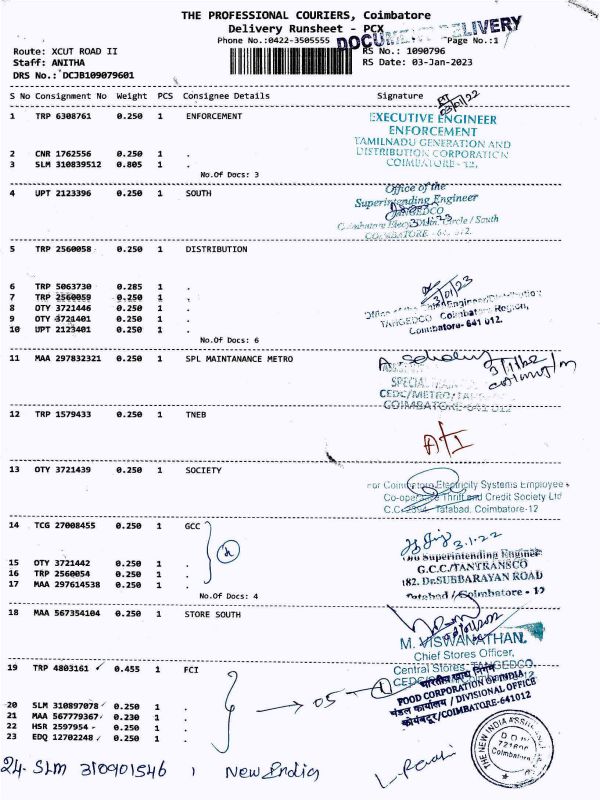 THE PROFESSIONAL COURIERS, Coimbatore
Delivery Runsheet - PCX
DOCUMENT DELIVERY
Phone No.:0422-3505555
Page No.:1
Route: XCUT ROAD II
RS No.: 1090796
Staff: ANITHA
RS Date: 03-Jan-2023
DRS No.: DCJB109079601
S No Consignment No Weight PCS Consignee Details Signature
1 TRP 6308761 0.250 1 ENFORCEMENT
03/01/22
EXECUTIVE ENGINEER
ENFORCEMENT
TAMILNADU GENERATION AND
DISTRIBUTION CORPORATION
COIMBATORE - 12.
2 CNR 1762556 0.250 1 .
3 SLM 310839512 0.805 1 .
No.Of Docs: 3
4 UPT 2123396 0.250 1 SOUTH
Office of the
Superintending Engineer
TANGEDCO
3.1.23
Coimbatore Elecy. Distn. Circle / South
COIMBATORE - 641 012.
5 TRP 2560058 0.250 1 DISTRIBUTION
6 TRP 5063730 0.285 1 .
7 TRP 2560059 0.250 1 .
8 OTY 3721446 0.250 1 .
9 OTY 3721401 0.250 1 .
10 UPT 2123401 0.250 1 .
No.Of Docs: 6
3/01/23
Office of the Chief Engineer/Distribution
TANGEDCO Coimbatore Region,
Coimbatore- 641 012.
11 MAA 297832321 0.250 1 SPL MAINTANANCE METRO
3/1/22
SPECIAL
CEDC/METRO/TANGEDCO
COIMBATORE-641 012
12 TRP 1579433 0.250 1 TNEB
13 OTY 3721439 0.250 1 SOCIETY
For Coimbatore Electricity Systems Employee
Co-operative Thrift and Credit Society Ltd
Tatabad, Coimbatore-12
14 TCG 27008455 0.250 1 GCC
3.1.22
O/o Superintending Engineer
G.C.C./TANTRANSCO
182. Dr.SUBBARAYAN ROAD
Tatabad / Coimbatore - 12
15 OTY 3721442 0.250 1 .
16 TRP 2560054 0.250 1 .
17 MAA 297614538 0.250 1 .
No.Of Docs: 4
18 MAA 567354104 0.250 1 STORE SOUTH
M. VISWANATHAN.
Chief Stores Officer,
Central Stores, TANGEDCO,
19 TRP 4803161 0.455 1 FCI
05
भारतीय खाद्य निगम
FOOD CORPORATION OF INDIA
मंडल कार्यालय / DIVISIONAL OFFICE
कोयंबटूर/COIMBATORE-641012
20 SLM 310897078 0.250 1 .
21 MAA 567779367 0.230 1 .
22 HSR 2597954 0.250 1 .
23 EDQ 12702248 0.250 1 .
24. SLM 310901546 1 New India
THE NEW INDIA ASSURANCE
Coimbatore